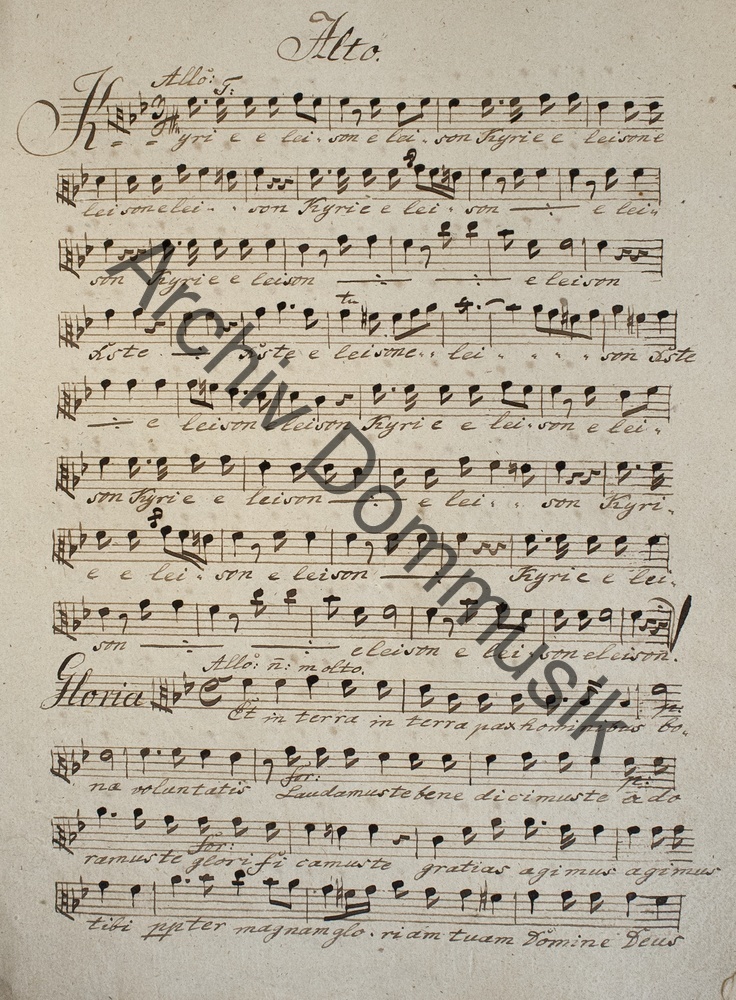 Alto.
Allo: T:
K yri e e lei - son e lei - son Kyrie e leison e
leison e lei - - son Kyrie e lei - son e lei -
son Kyrie e leison e leison
Xste Xste e leison e - - lei - - - - son Xste
e leison leison Kyri e e lei - son e lei -
son Kyri e e leison e lei - - son Kyri -
e e lei - son e leison Kyrie e lei -
son e leison e lei - son eleison.
Allo: ñ: molto.
Gloria Et in terra in terra pax hominibus bo - p:
næ voluntatis for: Laudamus te bene dicimus te p: ado
ramus te for: glorifi camus te gratias agimus agimus
tibi ppter magnam glo - riam tuam Domine Deus
Archiv Dommusik